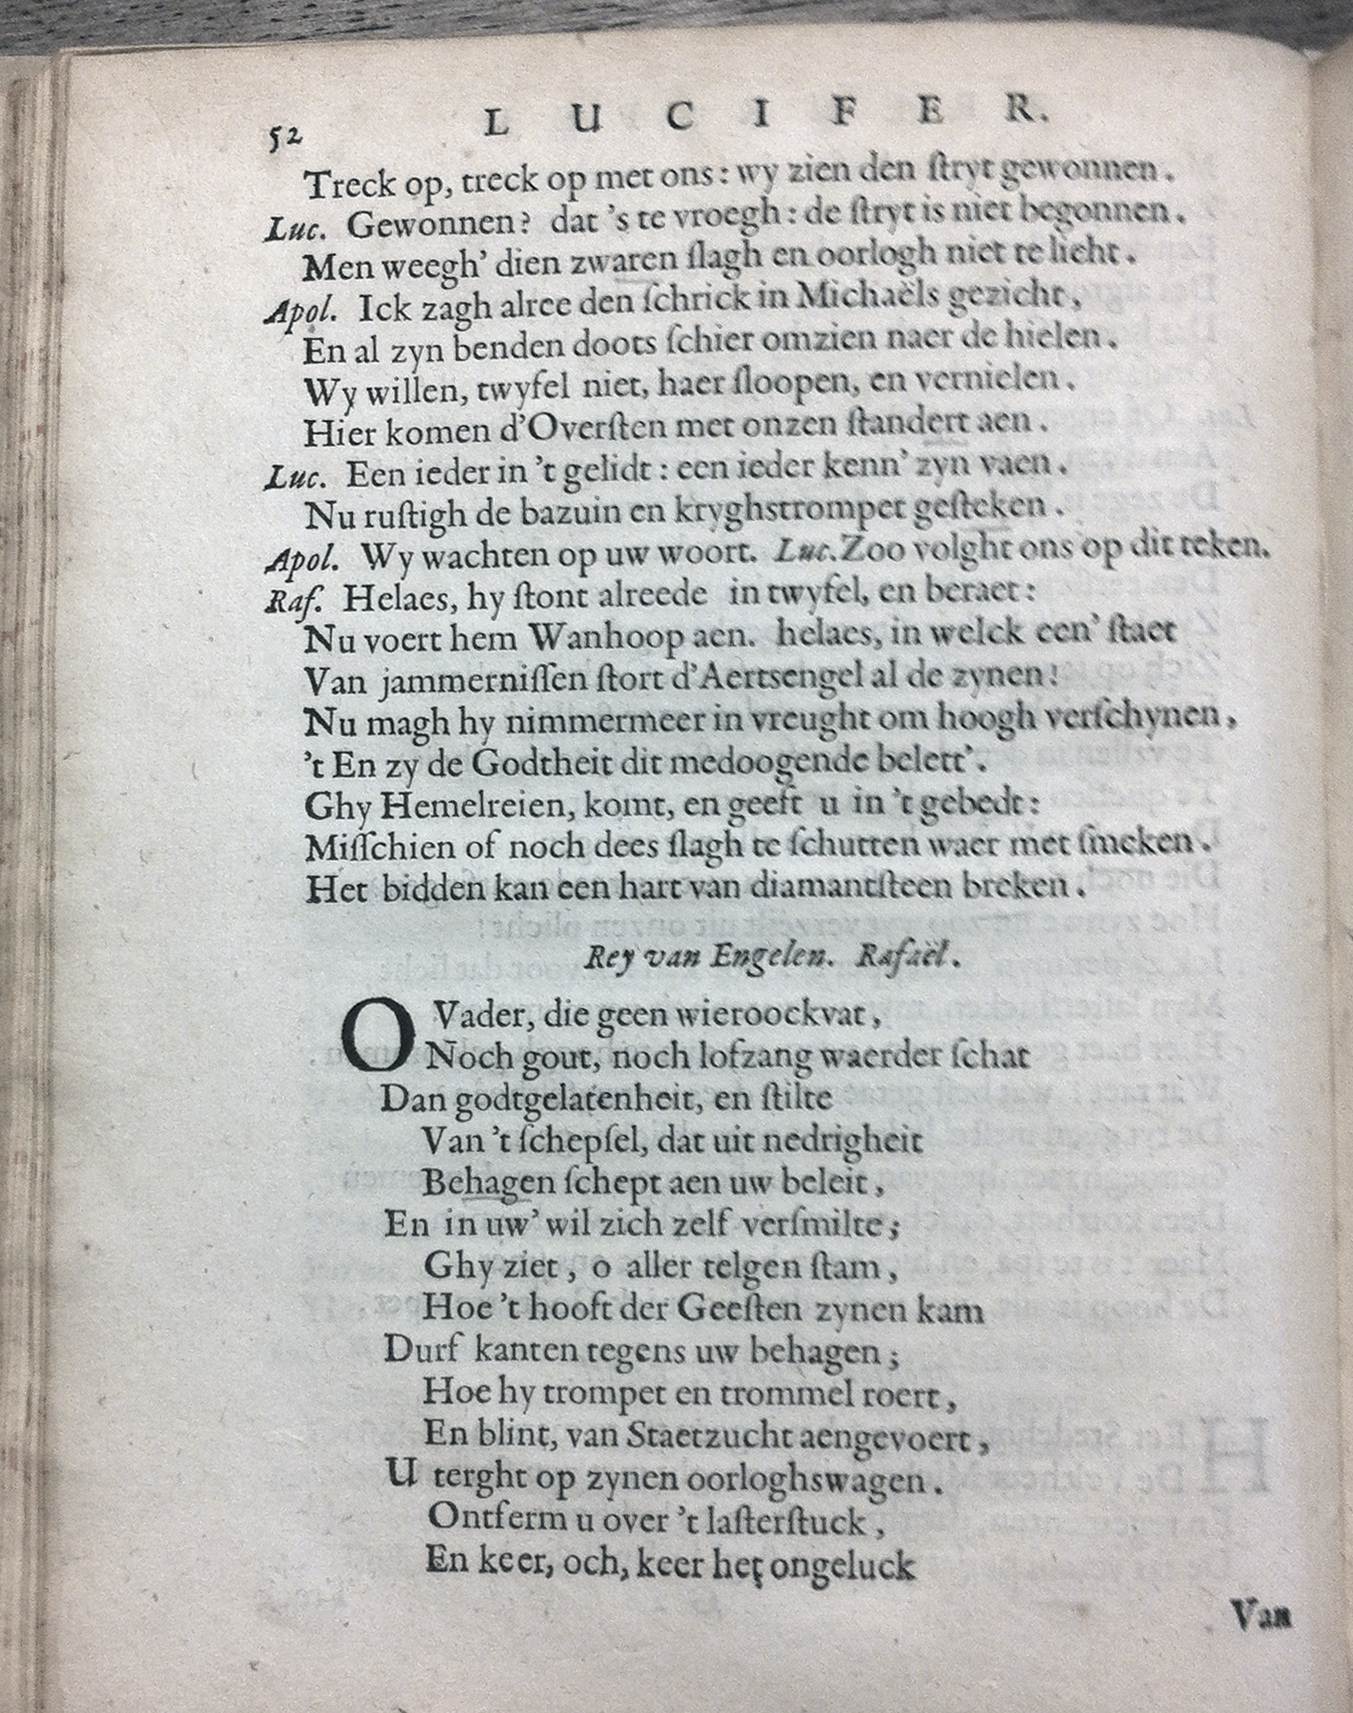 52 LUCIFER.
Treck op, treck op met ons: wy zien den ſtryt gewonnen.
Luc. Gewonnen? dat 's te vroegh: de ſtryt is niet begonnen.
Men weegh' dien zwaren ſlagh en oorlogh niet te licht.
Apol. Ick zagh alree den ſchrick in Michaëls gezicht,
En al zyn benden doots ſchier omzien naer de hielen.
Wy willen, twyfel niet, haer ſloopen, en vernielen.
Hier komen d'Overſten met onzen ſtandert aen.
Luc. Een ieder in 't gelidt: een ieder kenn' zyn vaen.
Nu ruſtigh de bazuin en kryghstrompet geſteken.
Apol. Wy wachten op uw woort. Luc. Zoo volght ons op dit teken.
Raf. Helaes, hy ſtont alreede in twyfel, en beraet:
Nu voert hem Wanhoop aen. helaes, in welck een' ſtaet
Van jammerniſſen ſtort d'Aertsengel al de zynen!
Nu magh hy nimmermeer in vreught om hoogh verſchynen,
't En zy de Godtheit dit medoogende belett'.
Ghy Hemelreien, komt, en geeft u in 't gebedt:
Miſſchien of noch dees ſlagh te ſchutten waer met ſmeken.
Het bidden kan een hart van diamantſteen breken.
Rey van Engelen. Rafaël.
O Vader, die geen wieroockvat,
Noch gout, noch lofzang waerder ſchat
Dan godtgelatenheit, en ſtilte
Van 't ſchepſel, dat uit nedrigheit
Behagen ſchept aen uw beleit,
En in uw' wil zich zelf verſmilte;
Ghy ziet, o aller telgen ſtam,
Hoe 't hooft der Geeſten zynen kam
Durf kanten tegens uw behagen;
Hoe hy trompet en trommel roert,
En blint, van Staetzucht aengevoert,
U terght op zynen oorloghswagen.
Ontferm u over 't laſterſtuck,
En keer, och, keer het ongeluck
Van